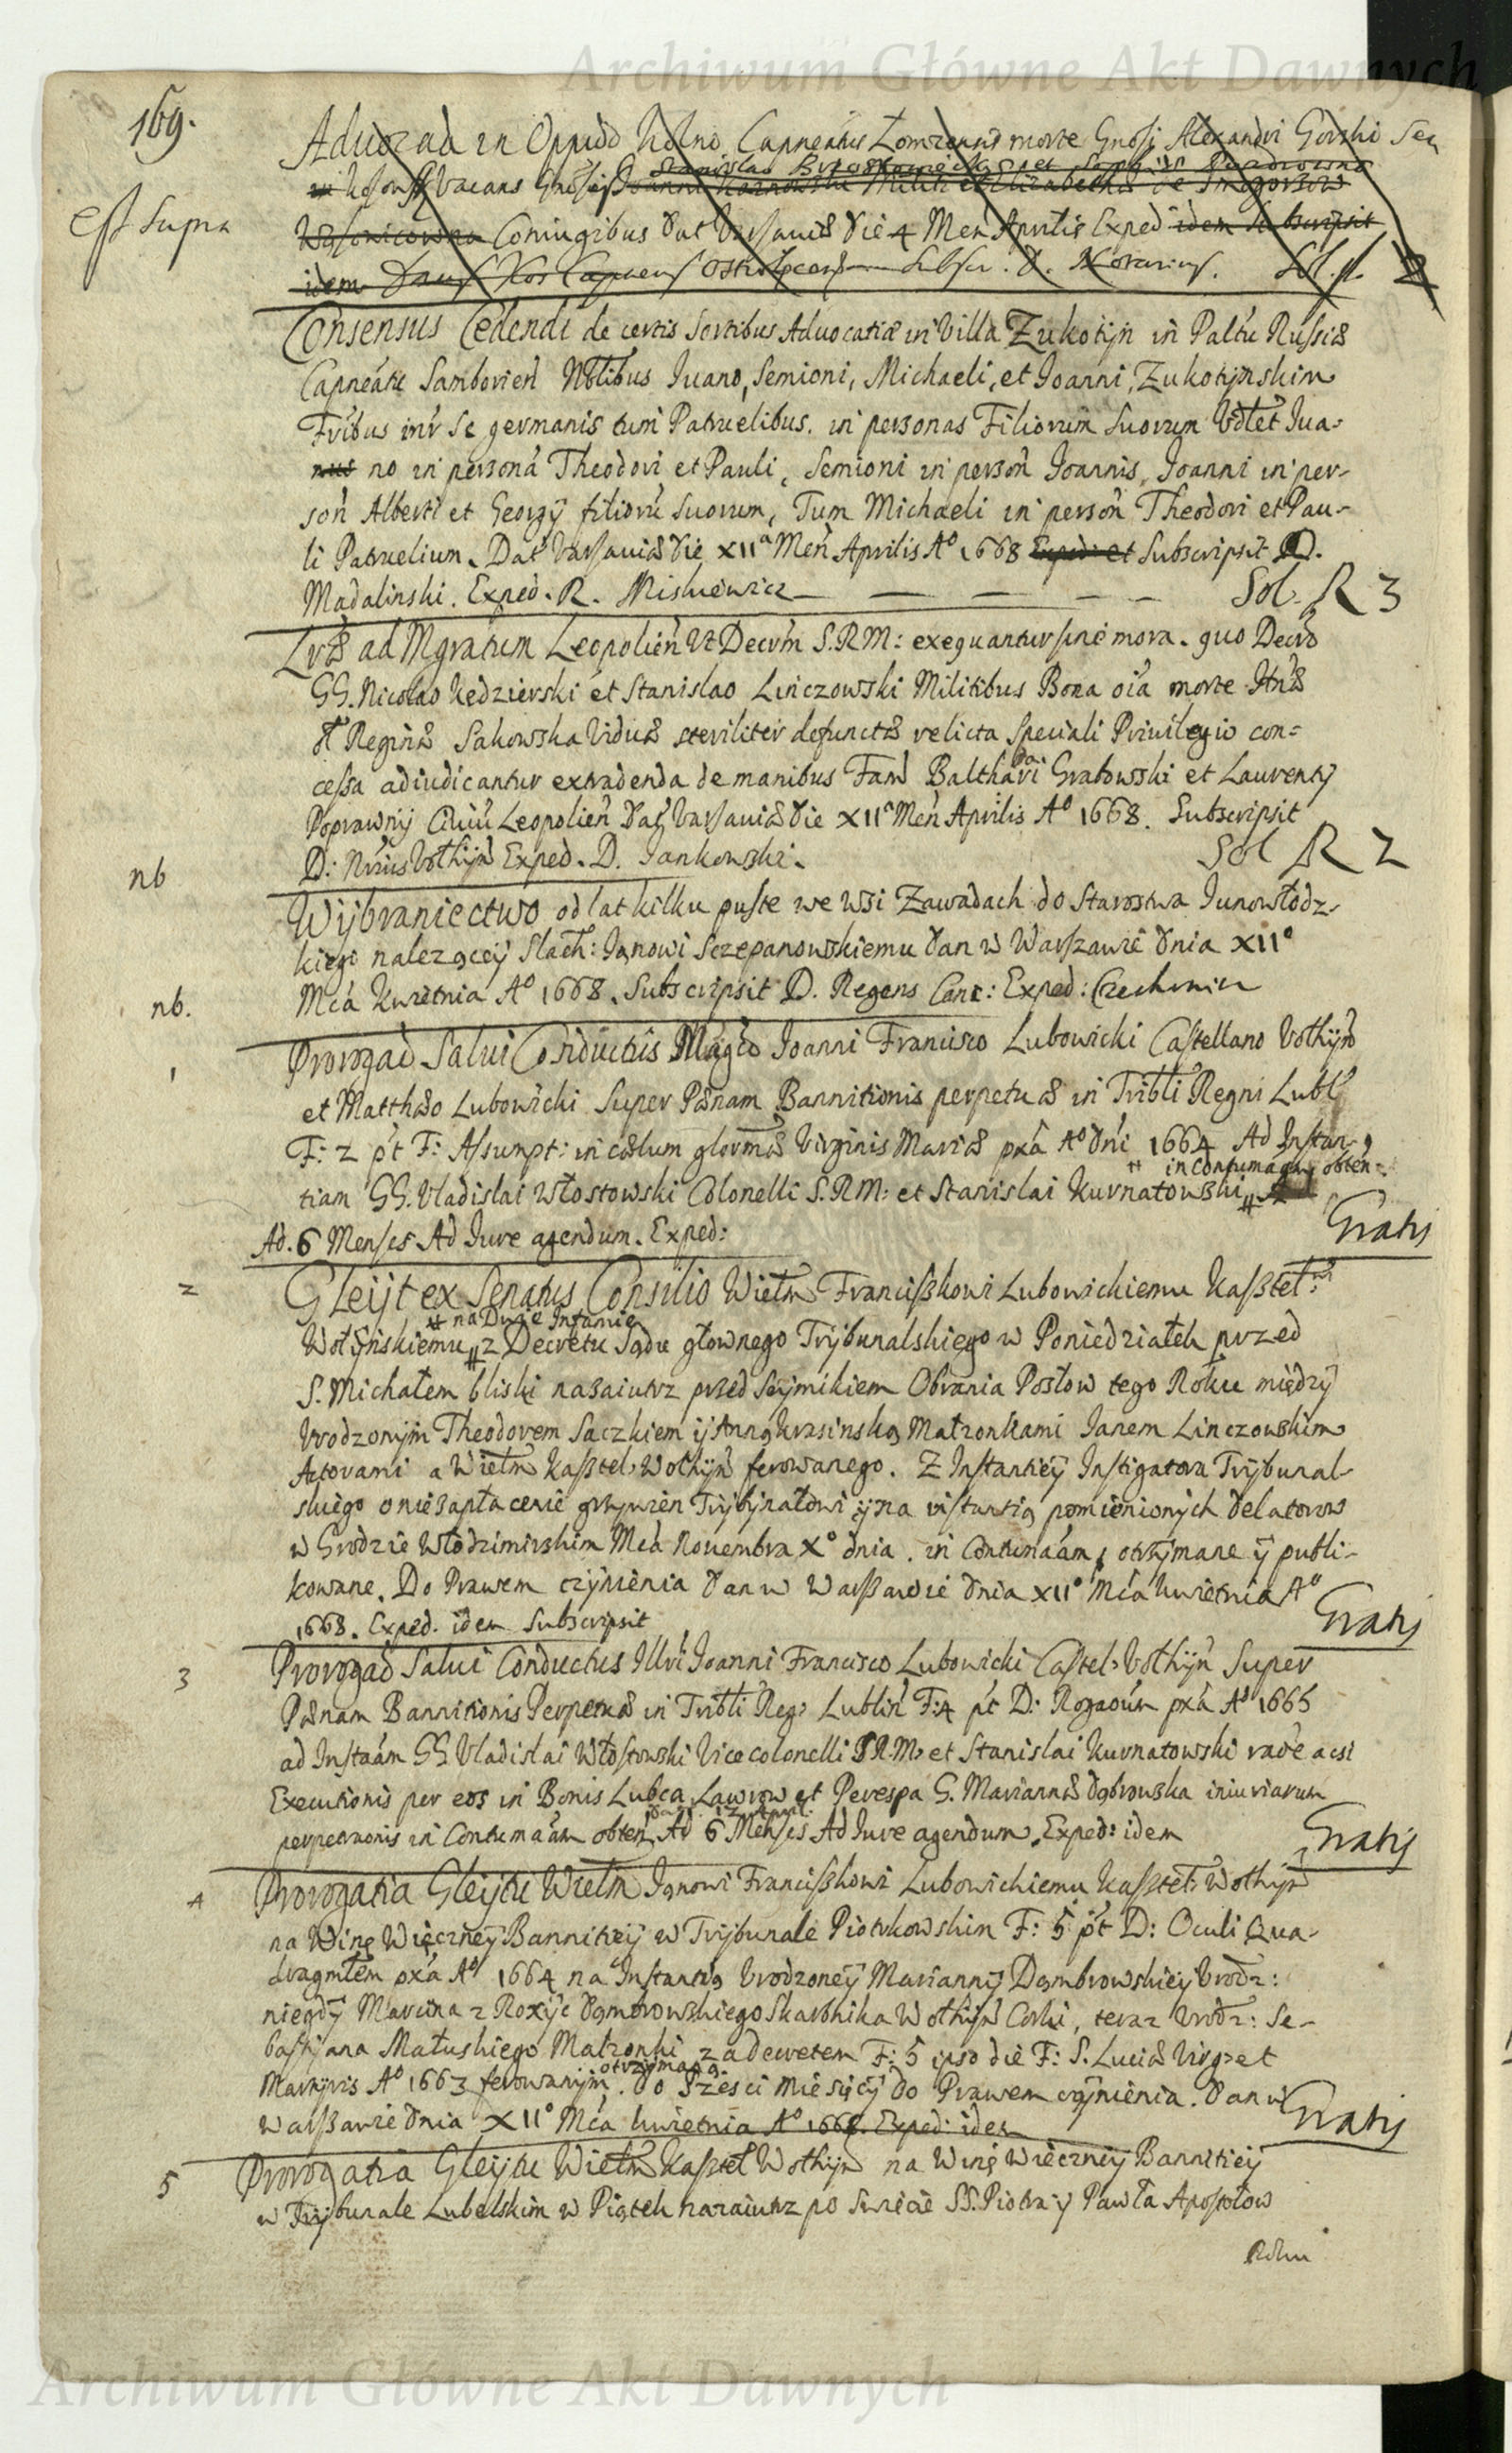 Archiwum Główne Akt Dawnych
169.
Aduocad in Oppido Kolno Capneatus Lomzensis morte Gnosi Alexandri Gorski Seu
est supra
Vacans
Coniugibus Dat Varsauiæ Die 4 Men Aprilis Exped idem subscripsit
idem Subscr. D. Notarius. Sol. fl. 2
Consensus Cedendi de certis Sortibus Aduocatiæ in Villa Zukotÿn in Paltu Russiæ
Capneatu Samborien Nblibus Iuano, Semioni, Michaeli, et Joanni, Zukotÿnskim
Fribus intr Se germanis tum Patruelibus. in personas Filiorum Suorum Vdlet Iua-
nus no in persona Theodori et Pauli, Semioni in person Joannis, Joanni in per-
son Alberti et Georgÿ filioru Suorum, Tum Michaeli in person Theodori et Pau-
li Patruelium. Dat Varsauiæ Die XIIa Men Aprilis Ao 1668 Exped: et Subscripsit D.
Madalinski. Exped. R. Miskiewicz — — — — — Sol. R 3
Lræ ad Mgratum Leopolien Vt Decrm S.RM: exequantur sine mora. quo Decro
GG. Nicolao Kedzierski et Stanislao Linczowski Militibus Bona oia morte Htnæ
Reginæ Sakowska Viduæ steriliter defunctæ relicta Speciali Priuilegio con=
cessa adiudicantur extradenda de manibus Fam Balthasari Gratowski et Laurentÿ
Poprawnÿ Ciuiu Leopolien Dat Varsauiæ Die XIIa Men Aprilis Ao 1668. Subscripsit
D: Nrius Vothÿn Exped. D. Jankowski. Sol R 2
nb
Wÿbraniectwo od lat kilku puste we Wsi Zawadach do Starostwa Inowłodz-
kiego nalezącey Slach: Janowi Sczepanowskiemu Dan w Warszawie Dnia XIIo
Mca Kwietnia Ao 1668. Subscripsit D. Regens Canc: Exped: Czechowicz
nb.
1
Prorogad Salui Conductus Magco Joanni Francisco Lubowicki Castellano Vothÿn
et Matthæo Lubowicki Super Pænam Bannitionis perpetuæ in Tribli Regni Lubl
F: 2 pt F: Assumpt: in cælum glormæ Virginis Mariæ pxa Ao Dni 1664 Ad Instan-
in Contumaciam obten:
tiam GG. Vladislai Włostowski Colonelli S.RM: et Stanislai Kurnatowski
Ad. 6 Menses Ad Iure agendum. Exped: Gratis
2
Gleÿt ex Senatus Consilio Wielm Franciszkowi Lubowickiemu Kasztel:
na Dwie Infamie
Wołÿnskiemu z Decretu Sądu głownego Trÿbunalskiego w Poniedziałek przed
S. Michałem bliski nazaiutrz przed Seymikiem Obrania Posłow tego Roku międzÿ
Vrodzonÿm Theodorem Saczkiem ÿ Anną Krasinską Małzonkami Janem Linczowskim
Actorami a Wielm Kasztel. Wołhÿn ferowanego. Z Instantiey Instigatora Trÿbunal-
skiego o niezapłacenie grzywien Trÿbunałowi ÿ na instantią pomienionÿch Delatorow
w Grodzie Włodzimirskim Mca Nouembra Xo dnia. in Contumaam otrzÿmane ÿ publi-
kowane. Do Prawem czÿnienia Dan w Warszawie Dnia XIIo Mca Kwietnia Ao
1668. Exped. idem Subscripsit Gratis
3
Prorogad Salui Conductus Illri Joanni Francisco Lubowicki Castel. Vothÿn Super
Pænam Bannitionis Perpetuæ in Tribli Reg: Lublin F:4 pt D: Rogaoum pxa Ao 1665
ad Instaam GG. Vladislai Włostowski Vice colonelli S.R.M. et Stanislai Kurnatowski raoe acsi
Executionis per eos in Bonis Lubca, Lawrow et Perespa G. Mariannæ Dąbrowska iniuriarum
Dat. 12 April.
perpetraonis in Contumaam obten Ad 6 Menses Ad Iure agendum. Exped: idem Gratis
4
Prorogatia Gleÿtu Wielm Janowi Franciszkowi Lubowickiemu Kasztel: Wołhÿn
na Winę Wiecznej Bannitieÿ w Trÿbunale Piotrkowskim F: 5 pt D: Oculi Qua-
dragmlem pxa Ao 1664 na Instantią Vrodzoneÿ Mariannÿ Dąmbrowskieÿ Vrodz:
niegdÿ Marcina z Rozÿc Dąmbrowskiego Skarbnika Wołhÿn Corki, teraz Vrodz: Se-
bastÿana Małuskiego Małzonki za decretem F: 5 ipso die F: S. Luciæ Virg: et
otrzymaną.
Martÿris Ao 1663 ferowanÿm. do Szesci miesięcÿ do Prawem czÿnienia. Dan w
Warszawie Dnia XIIo Mca Kwietnia Ao 1668. Exped: idem Gratis
5
Prorogatia Gleÿtu Wielm Kasztel Wołhÿn na Winę Wieczneÿ Bannitieÿ
w Trÿbunale Lubelskim w Piątek nazaiutrz po Swiecie SS. Piotra ÿ Pawła Apostołow
Roku
Archiwum Główne Akt Dawnych